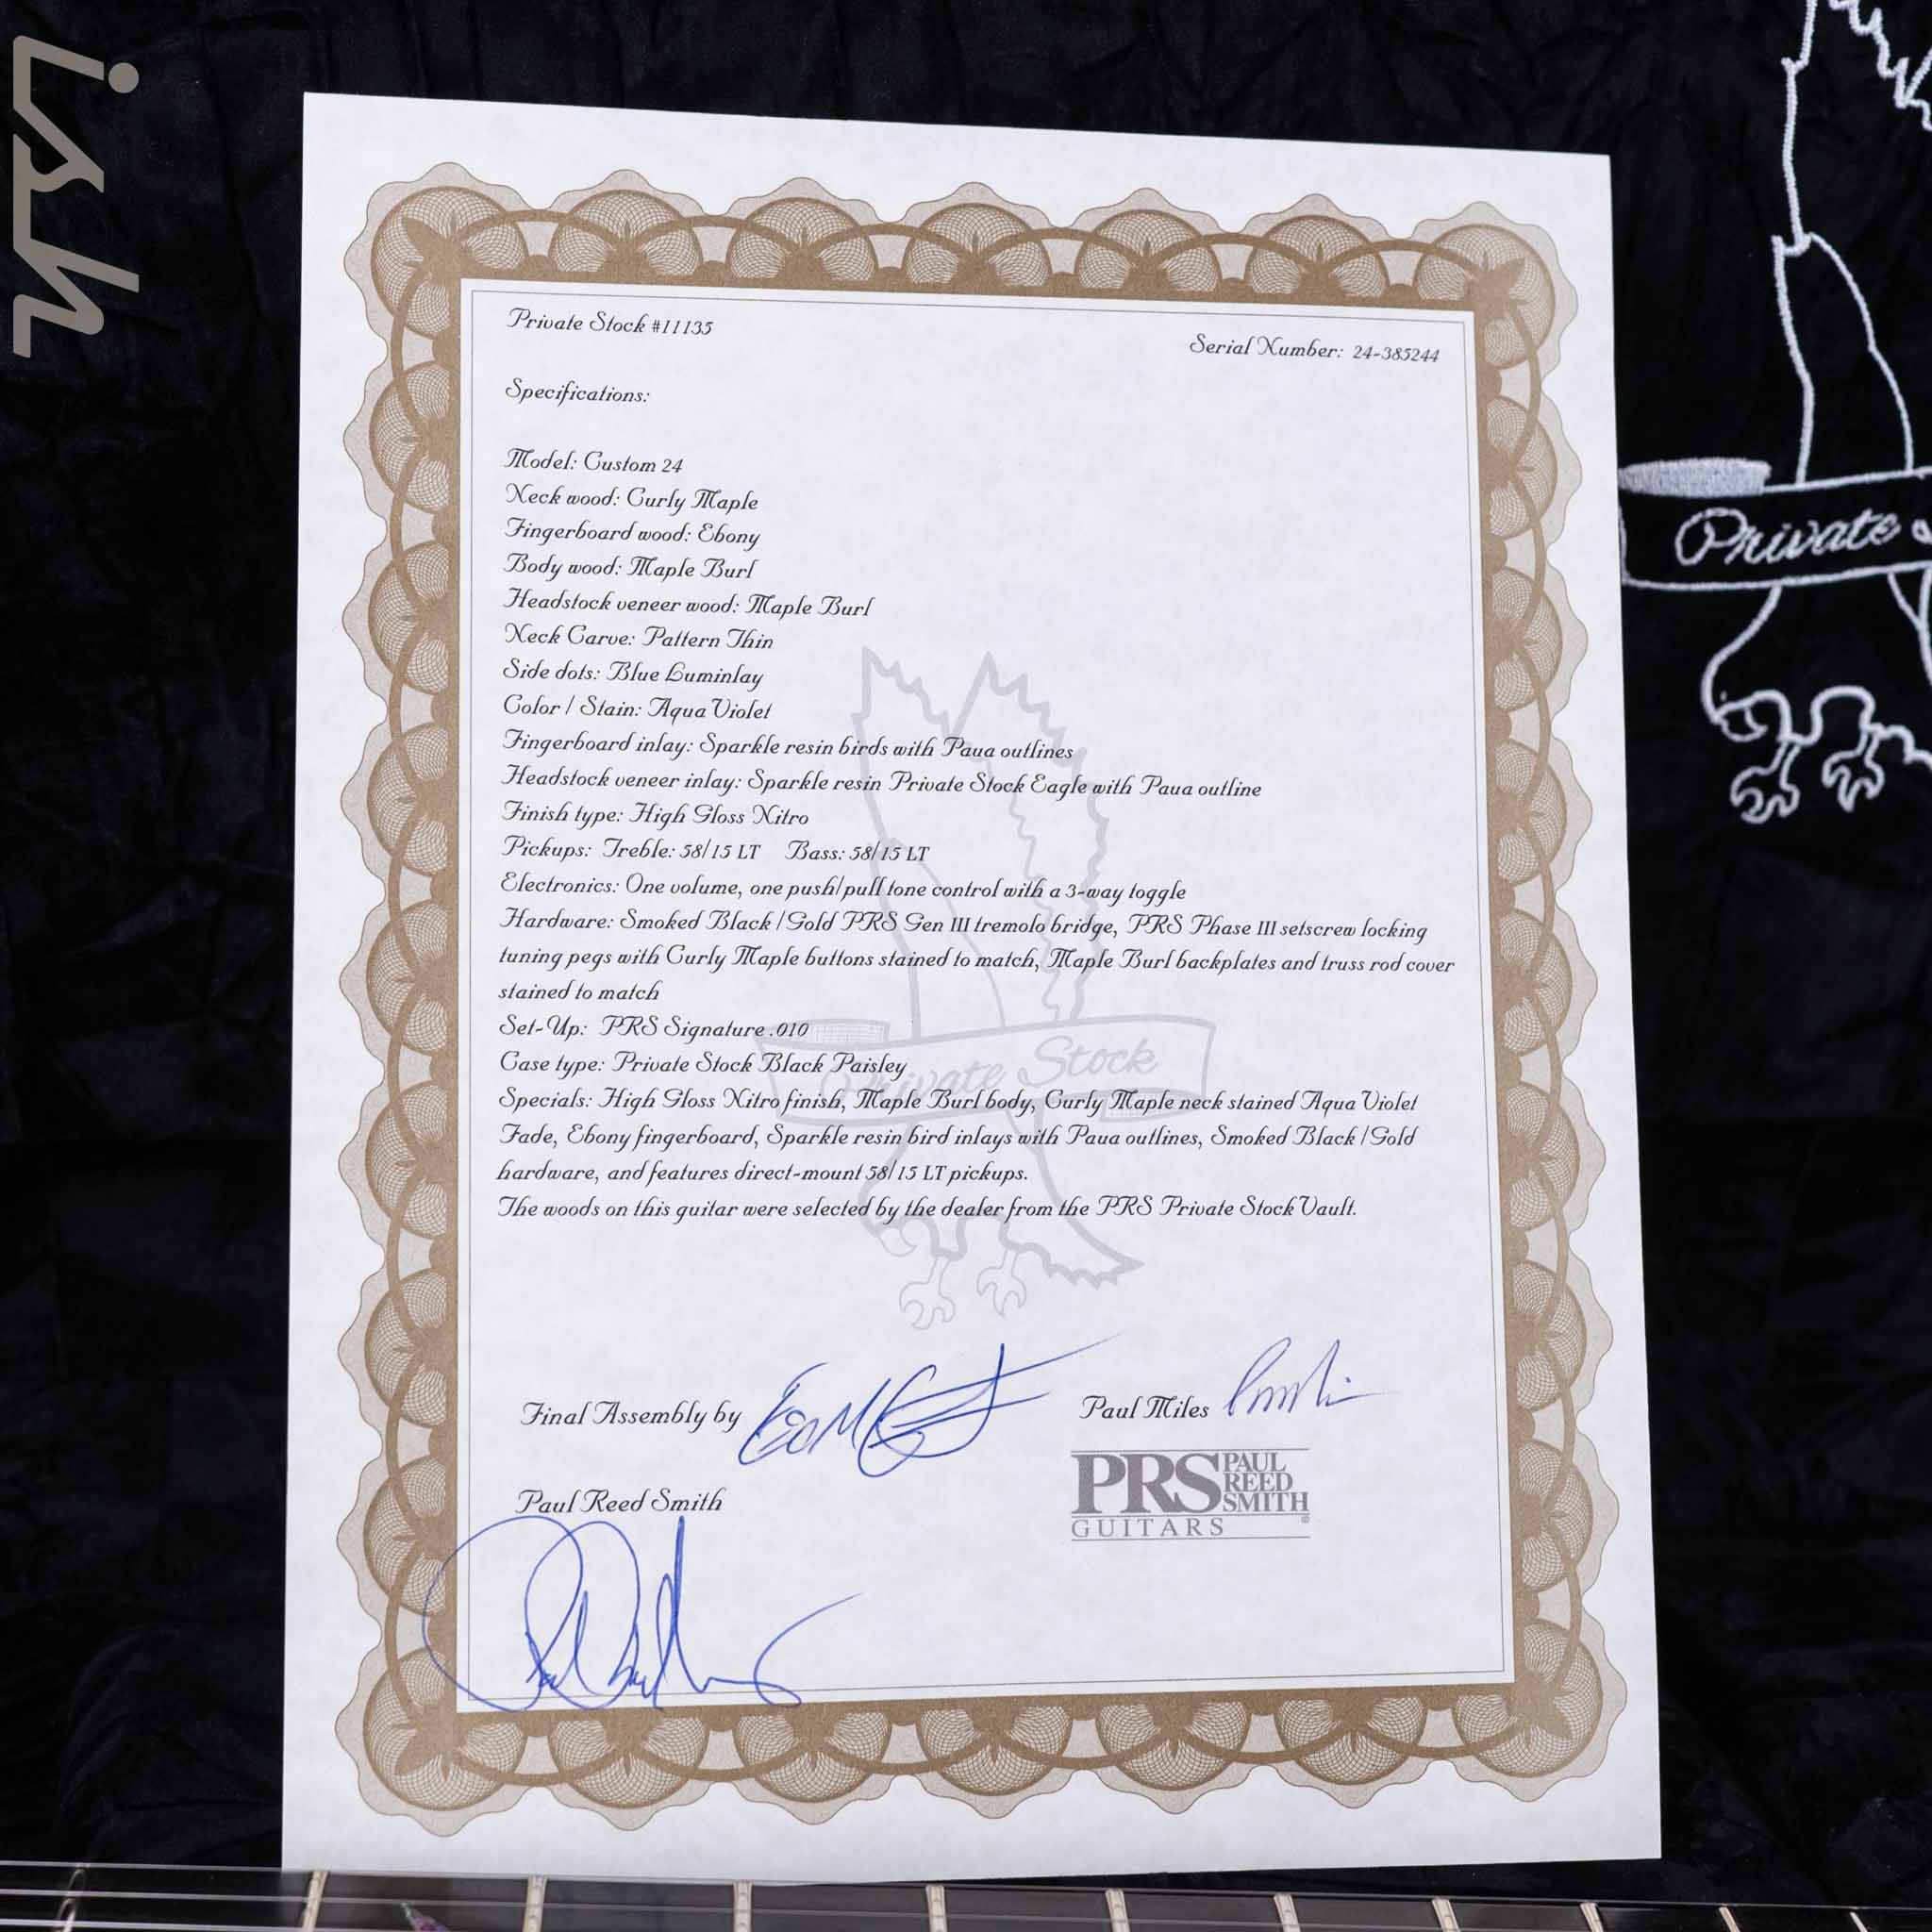 ish
Private Stock #11135
Serial Number: 24-385244
Specifications:
Model: Custom 24
Neck wood: Curly Maple
Fingerboard wood: Ebony
Body wood: Maple Burl
Headstock veneer wood: Maple Burl
Neck Carve: Pattern Thin
Side dots: Blue Luminlay
Color / Stain: Aqua Violet
Fingerboard inlay: Sparkle resin birds with Paua outlines
Headstock veneer inlay: Sparkle resin Private Stock Eagle with Paua outline
Finish type: High Gloss Nitro
Pickups: Treble: 58/15 LT Bass: 58/15 LT
Electronics: One volume, one push/pull tone control with a 3-way toggle
Hardware: Smoked Black / Gold PRS Gen III tremolo bridge, PRS Phase III setscrew locking
tuning pegs with Curly Maple buttons stained to match, Maple Burl backplates and truss rod cover
stained to match
Set-Up: PRS Signature .010
Case type: Private Stock Black Paisley
Specials: High Gloss Nitro finish, Maple Burl body, Curly Maple neck stained Aqua Violet
Fade, Ebony fingerboard, Sparkle resin bird inlays with Paua outlines, Smoked Black / Gold
hardware, and features direct-mount 58/15 LT pickups.
The woods on this guitar were selected by the dealer from the PRS Private Stock Vault.
Private Stock
Final Assembly by
Paul Miles
Paul Reed Smith
PRS PAUL
REED
SMITH
GUITARS
Private